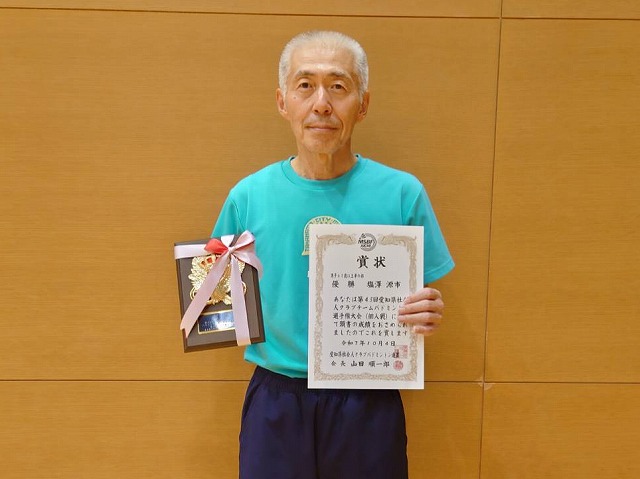 MSBF
賞状
優勝 塩澤 源市
あなたは第43回愛知県社会
人クラブチームバドミントン
選手権大会(個人戦)に
て頭書の成績をおさめられ
ましたのでこれを賞します
令和7年10月4日
愛知県社会人クラブバドミントン連盟
会長 山田 順一郎